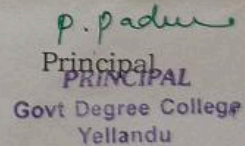 P. Padm
Principal
PRINCIPAL
Govt Degree College
Yellandu